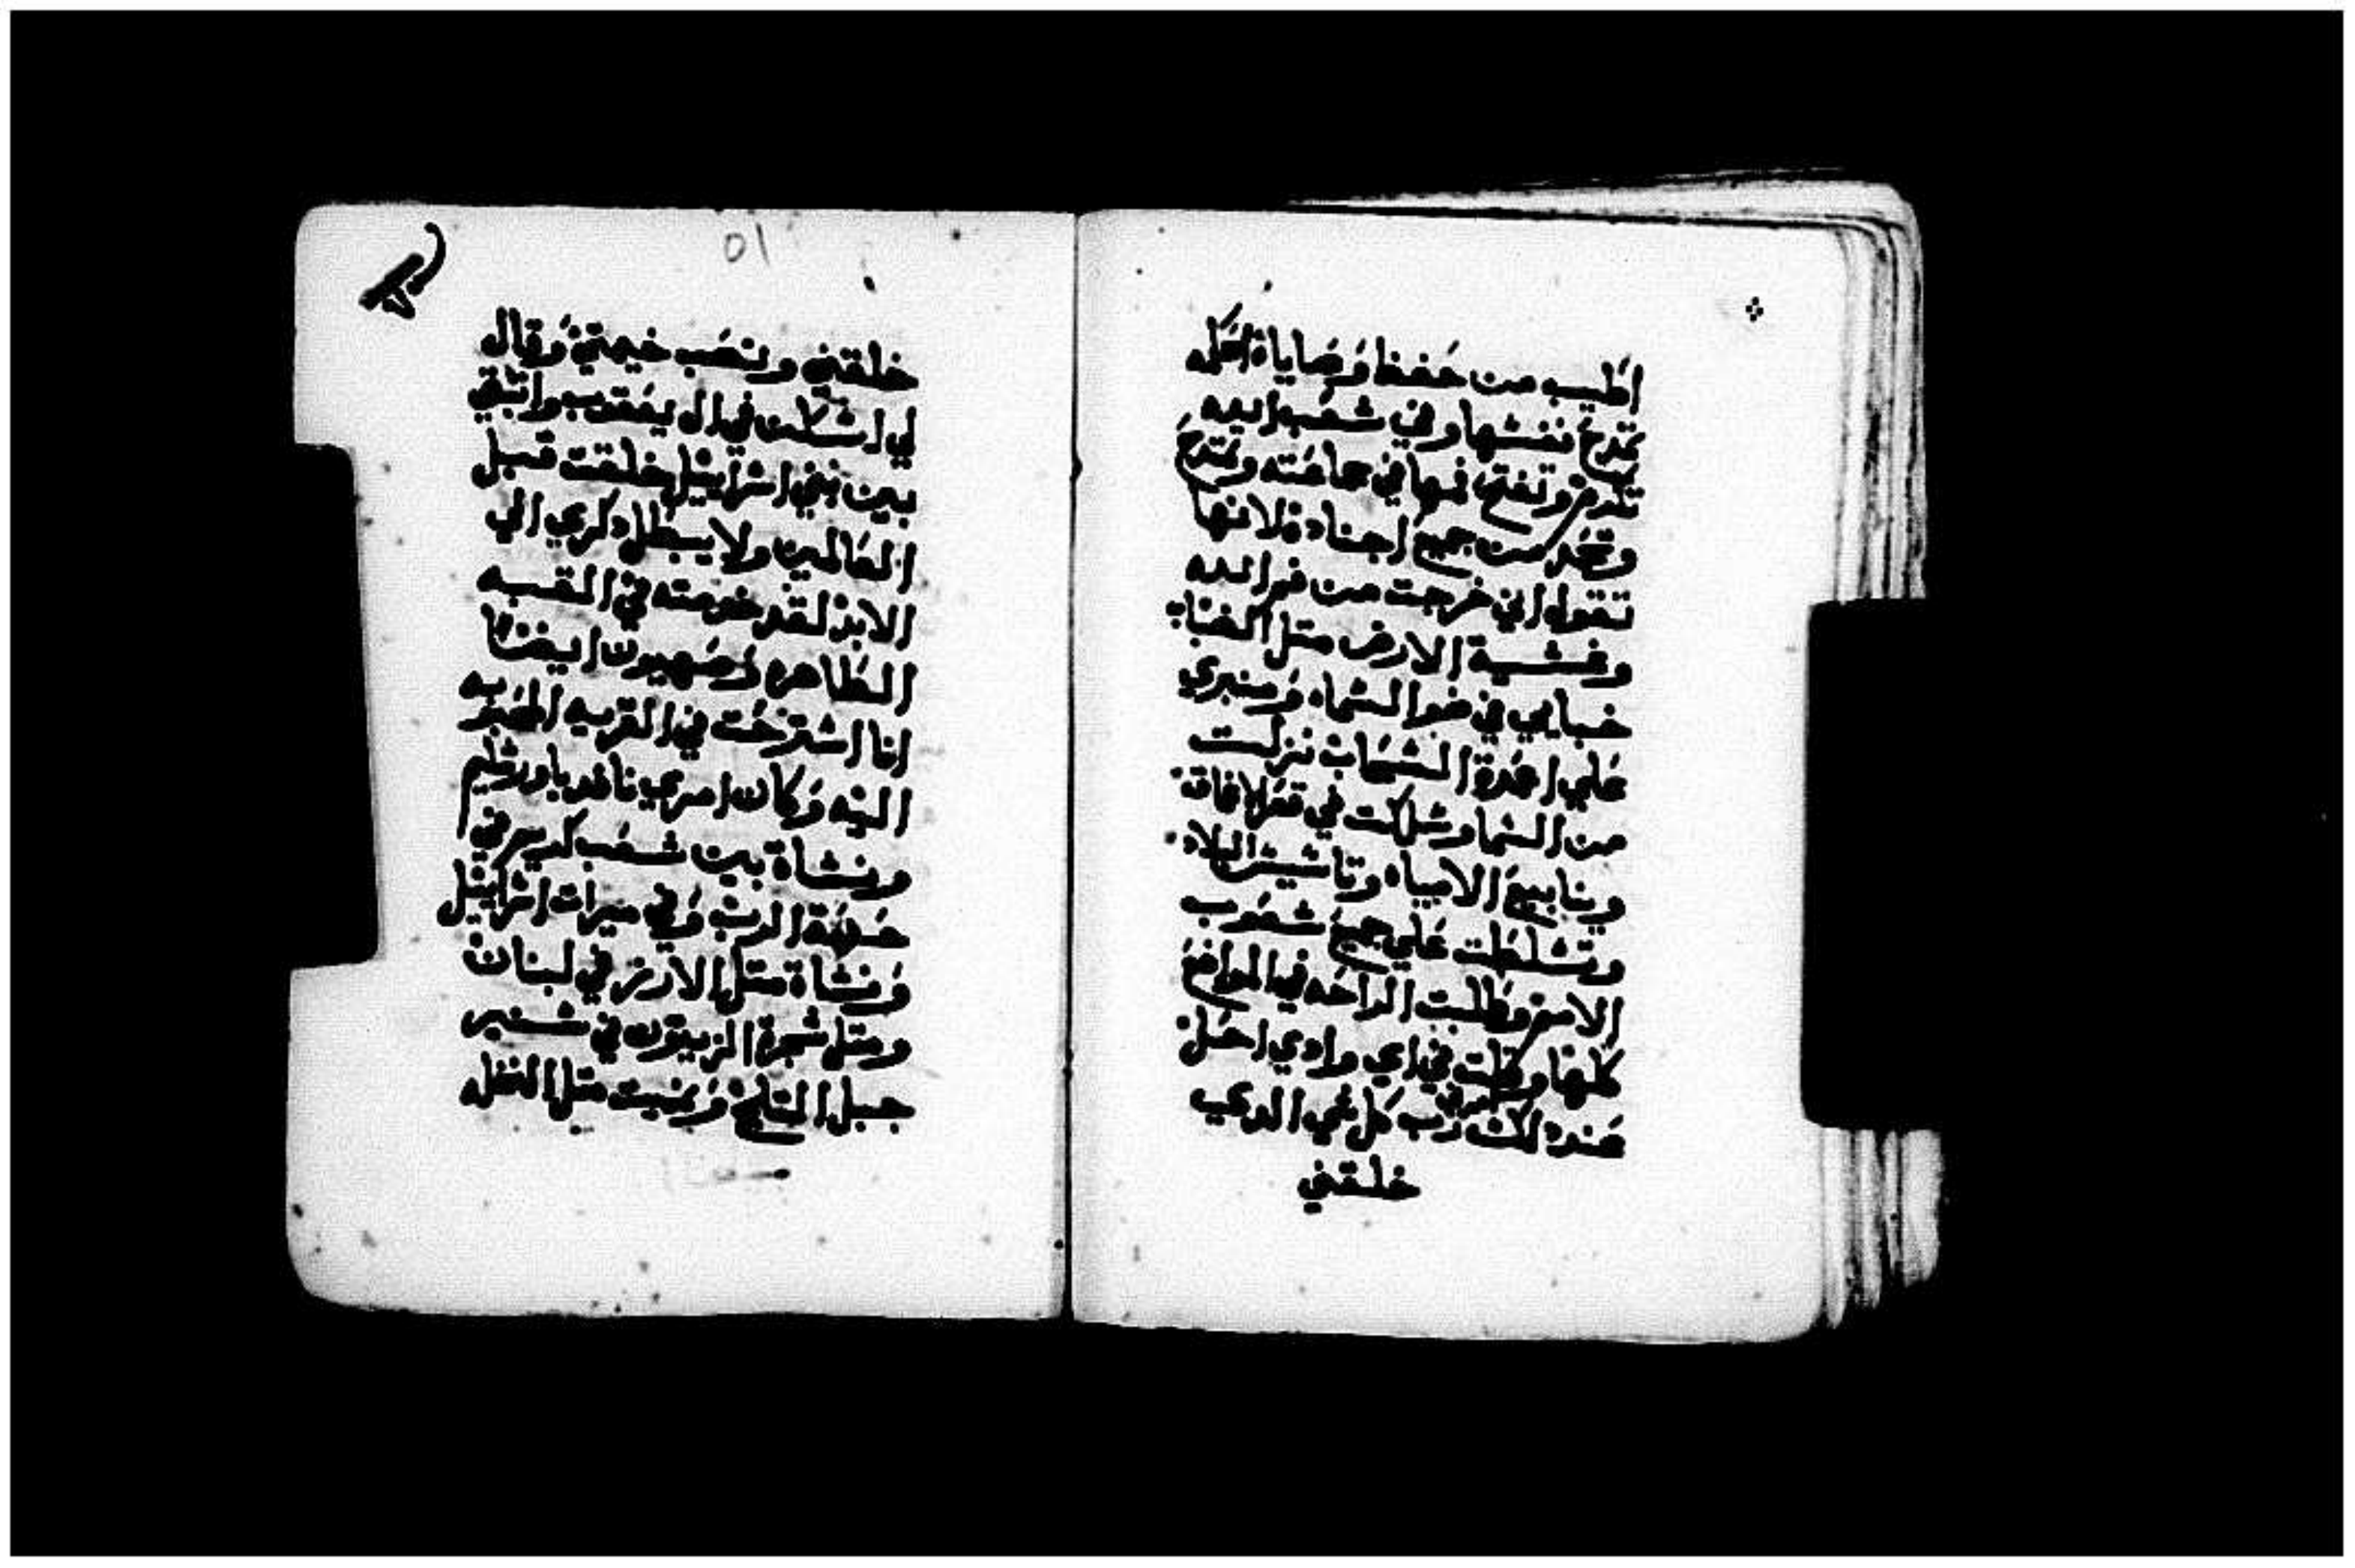 اطيب من حفظ وصاياة الله
تمدح نفسها وفي شعب الله
تكرم وتفتح فمها في جماعته وتمتدح
وتمجد من جميع اجناده لانها
تقول اني خرجت من فم الله
وغشية الارض متل الضباب
خبايي في ضو السماء ومنبري
علي اعمدة السحاب نزلت
من السما وسلكت في قعر الافاق
وينابيع الامياه وتاسيس البلاد
وتسلطت علي جميع شعوب
الامم وطلبت الراحه في المواضع
كلها وقلت في اي وادي احل
عند دلك امرني رب كل شي الدي
خلقني
٥١
خلقني ونصب خيمتي وقال
لي اسكن في ال يعقوب واتبتي
بين بني اسراييل خلقت قبل
العالمين ولا يبطل دكري الي
الابد لقد خدمته في القبه
الطاهره وصهيون ايضا
انا استرحت في القريه المحبوبه
اليه وكان امري نافد باورشليم
ونشاة بين شعب كريم في
حصة الرب وفي ميرات اسراييل
ونشاة متل الارز في لبنان
ومتل شجرة الزيتون في سنير
جبل التلج ونميت متل النخله